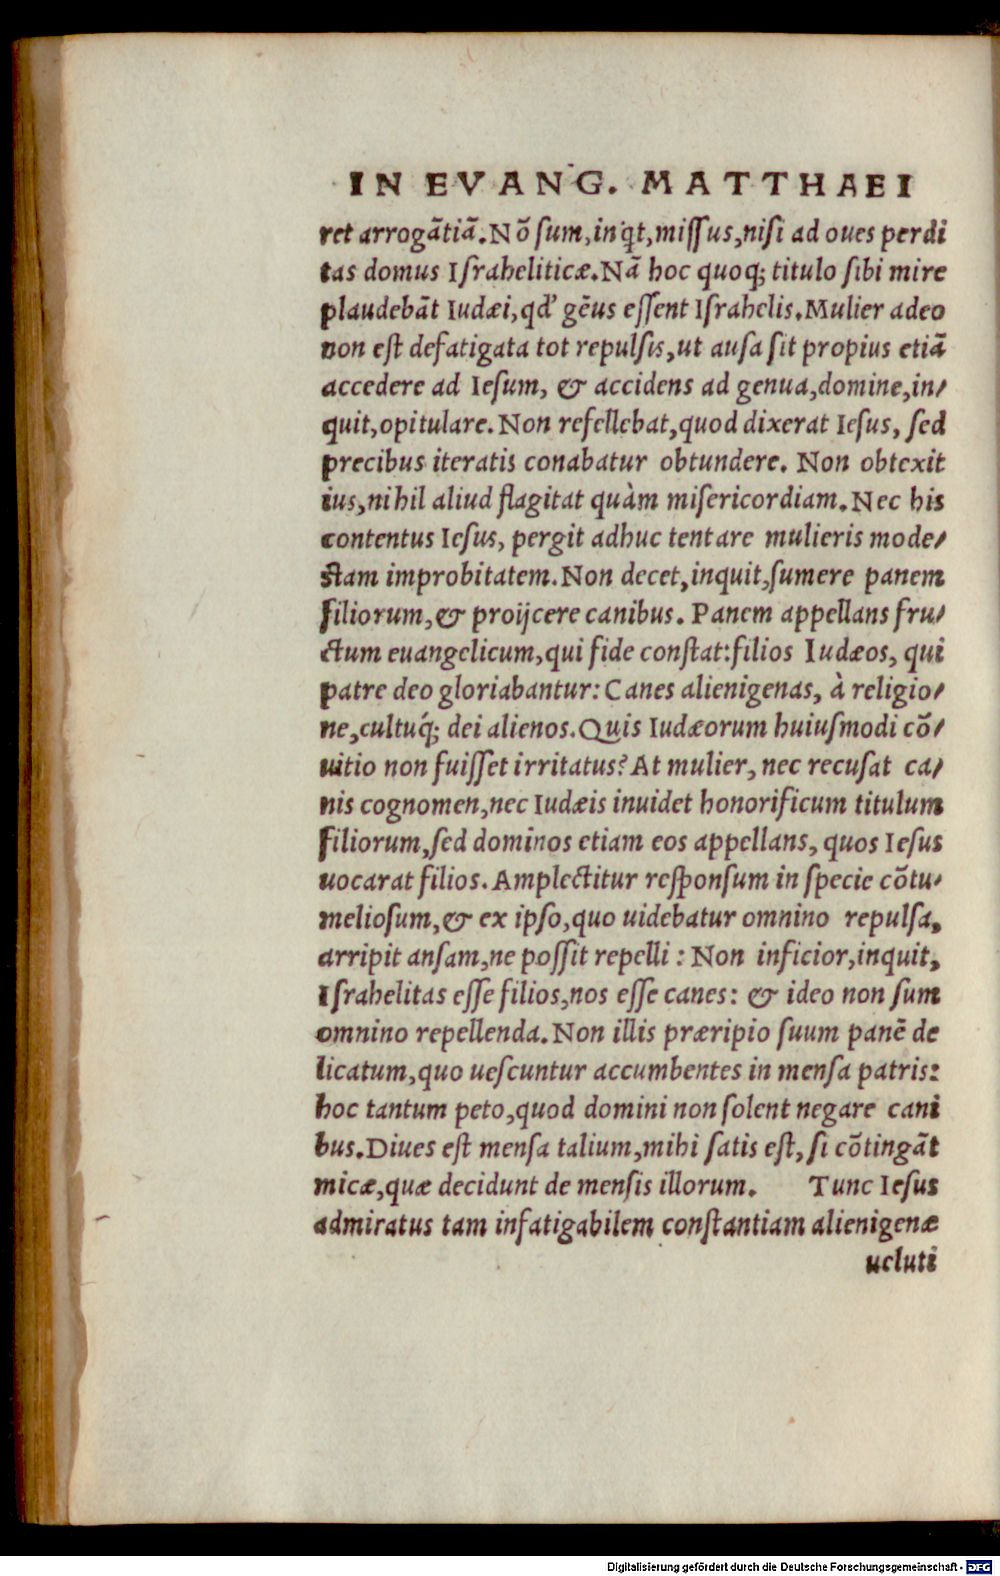 IN EVANG. MATTHAEI
ret arrogãtiã. Nõ sum, inq̃t, missus, nisi ad oues perdi
tas domus Israheliticæ. Nã hoc quoq; titulo sibi mire
plaudebãt Iudæi, qd' gẽus essent Israhelis. Mulier adeo
non est defatigata tot repulsis, ut ausa sit propius etiã
accedere ad Iesum, & accidens ad genua, domine, in/
quit, opitulare. Non refellebat, quod dixerat Iesus, sed
precibus iteratis conabatur obtundere. Non obtexit
ius, nihil aliud flagitat quàm misericordiam. Nec his
contentus Iesus, pergit adhuc tentare mulieris mode/
stam improbitatem. Non decet, inquit, sumere panem
filiorum, & proijcere canibus. Panem appellans fru/
ctum euangelicum, qui fide constat: filios Iudæos, qui
patre deo gloriabantur: Canes alienigenas, à religio/
ne, cultúq; dei alienos. Quis Iudæorum huiusmodi cõ/
uitio non fuisset irritatus? At mulier, nec recusat ca/
nis cognomen, nec Iudæis inuidet honorificum titulum
filiorum, sed dominos etiam eos appellans, quos Iesus
uocarat filios. Amplectitur responsum in specie cõtu/
meliosum, & ex ipso, quo uidebatur omnino repulsa,
arripit ansam, ne possit repelli: Non inficior, inquit,
Israhelitas esse filios, nos esse canes: & ideo non sum
omnino repellenda. Non illis præripio suum panẽ de
licatum, quo uescuntur accumbentes in mensa patris:
hoc tantum peto, quod domini non solent negare cani
bus. Diues est mensa talium, mihi satis est, si cõtingãt
micæ, quæ decidunt de mensis illorum. Tunc Iesus
admiratus tam infatigabilem constantiam alienigenæ
ueluti
Digitalisierung gefördert durch die Deutsche Forschungsgemeinschaft - DFG